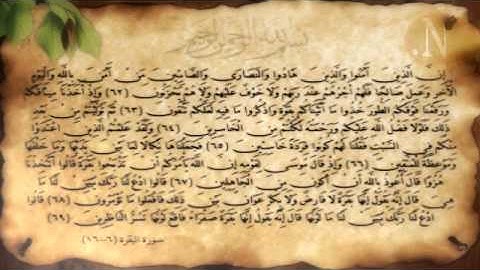 بسم الله الرحمن الرحيم
N.
إن الذين آمنوا والذين هادوا والنصارى والصابئين من آمن بالله واليوم
الآخر وعمل صالحا فلهم أجرهم عند ربهم ولا خوف عليهم ولا هم يحزنون (٦٢) وإذ أخذنا ميثاقكم
ورفعنا فوقكم الطور خذوا ما آتيناكم بقوة واذكروا ما فيه لعلكم تتقون (٦٣) ثم توليتم من بعد
ذلك فلولا فضل الله عليكم ورحمته لكنتم من الخاسرين (٦٤) ولقد علمتم الذين اعتدوا
منكم في السبت فقلنا لهم كونوا قردة خاسئين (٦٥) فجعلناها نكالا لما بين يديها وما خلفها
وموعظة للمتقين (٦٦) وإذ قال موسى لقومه إن الله يأمركم أن تذبحوا بقرة قالوا أتتخذنا
هزوا قال أعوذ بالله أن أكون من الجاهلين (٦٧) قالوا ادع لنا ربك يبين لنا ما
هي قال إنه يقول إنها بقرة لا فارض ولا بكر عوان بين ذلك فافعلوا ما تؤمرون (٦٨) قالوا
ادع لنا ربك يبين لنا ما لونها قال إنه يقول إنها بقرة صفراء فاقع لونها تسر الناظرين (٦٩)
سورة البقرة